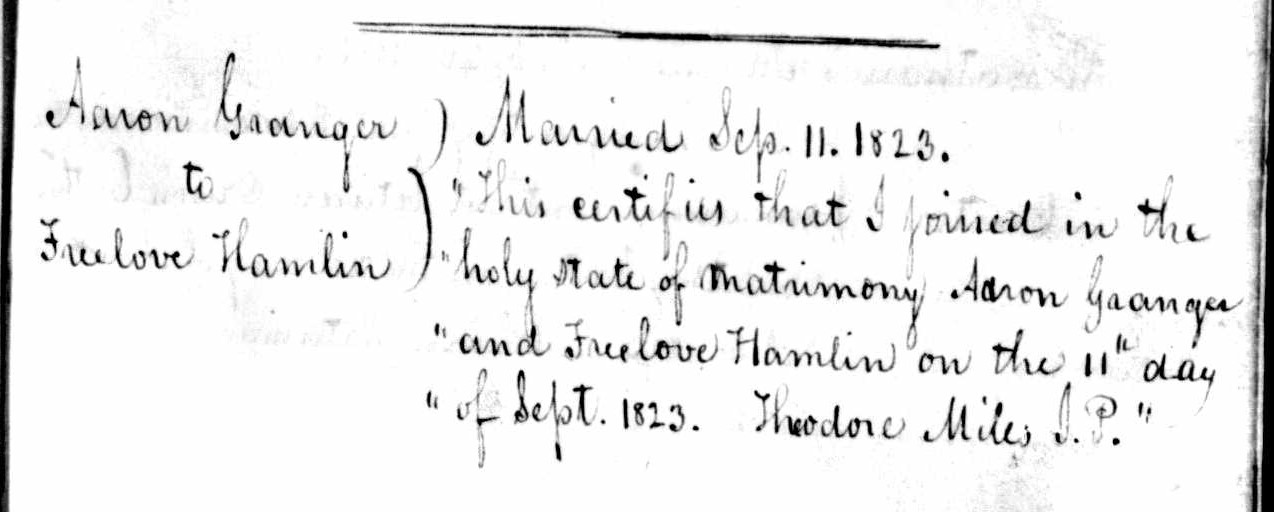 Aaron Granger ) Married Sep. 11. 1823.
to
"This certifies that I joined in the
Freelove Hamlin ) "holy state of matrimony Aaron Granger
"and Freelove Hamlin on the 11th day
"of Sept. 1823. Theodore Miles J.P."